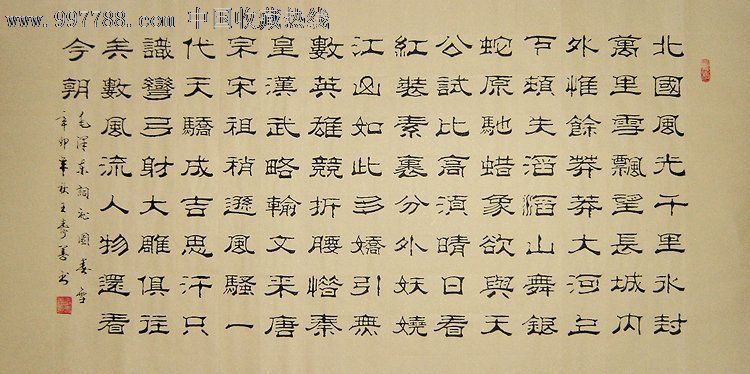 www.997788.com 中国收藏热线
北國風光千里氷封
萬里雪飄望長城内
外惟餘莽莽大河上
下頓失滔滔山舞銀
蛇原馳蜡象欲與天
公試比高須晴日看
紅裝素裹分外妖嬈
江山如此多嬌引無
數英雄競折腰惜秦
皇漢武略輸文采唐
宗宋祖稍遜風騷一
代天驕成吉思汗只
識彎弓射大雕俱往
矣數風流人物還看
今朝
毛澤東詞沁園春雪
辛卯年秋王壽善書